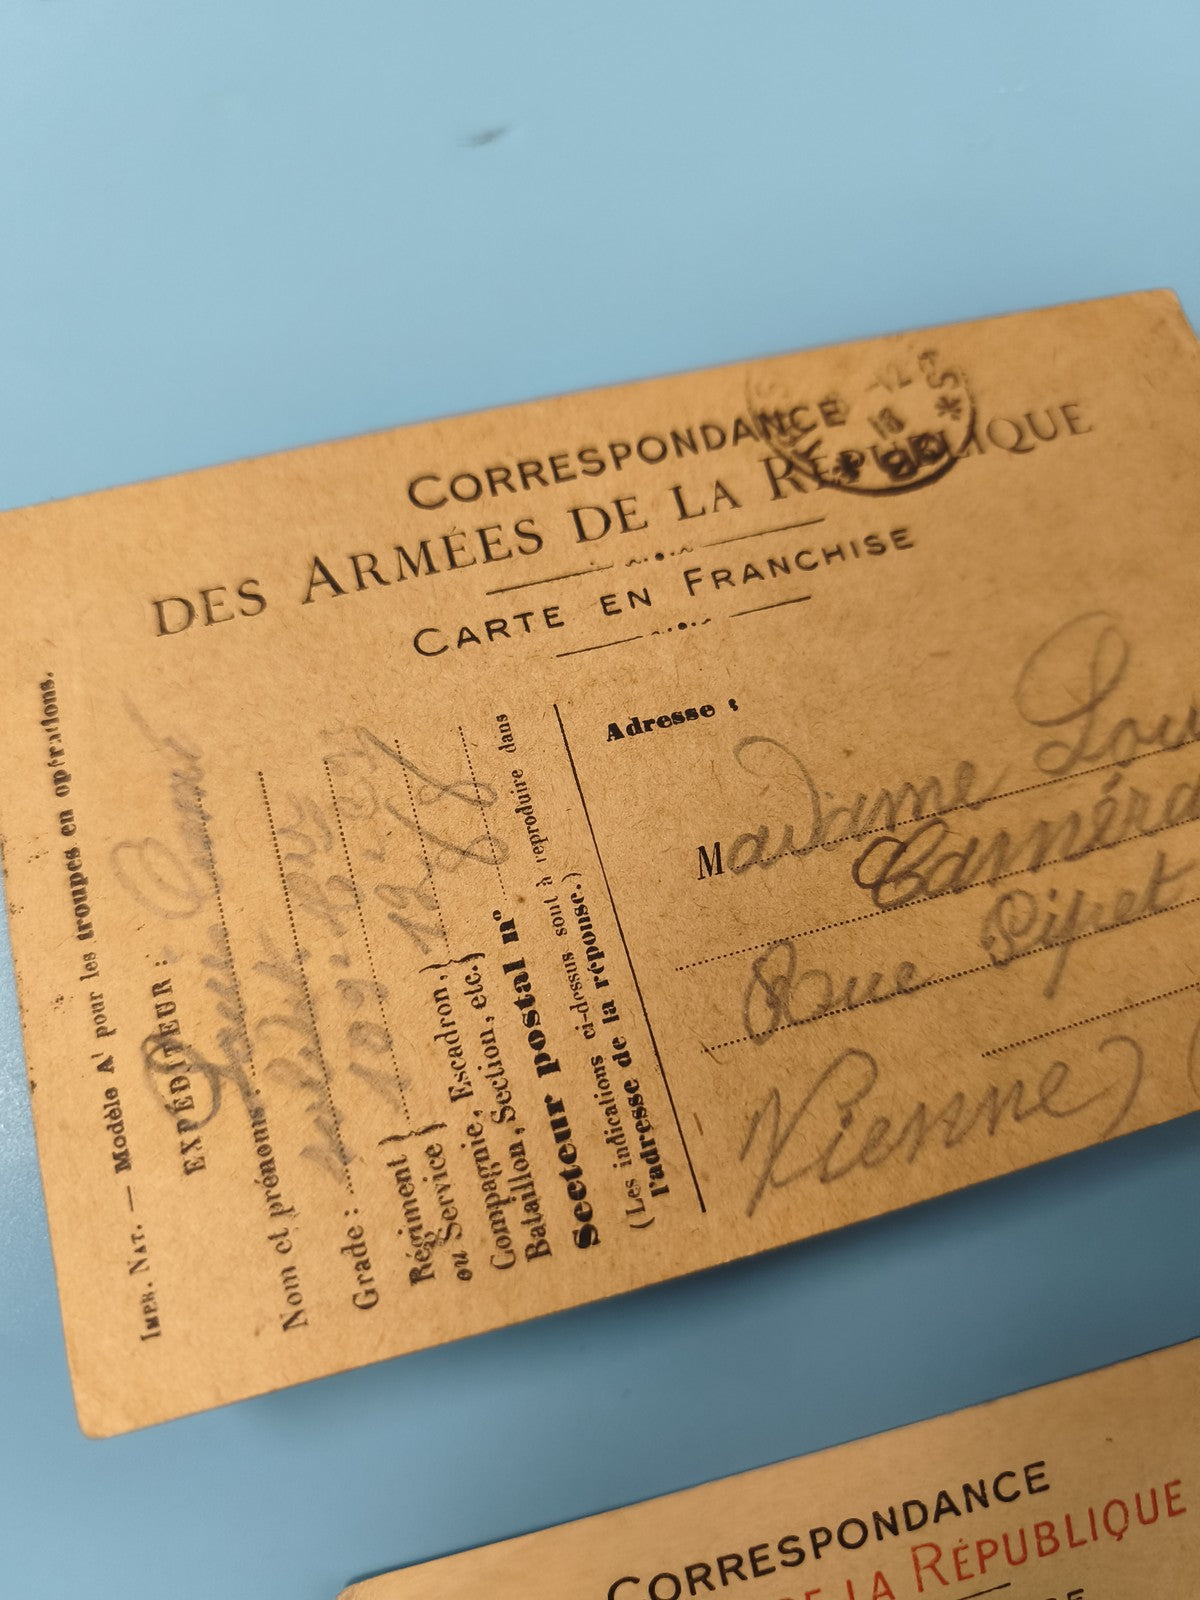 CORRESPONDANCE
DES ARMÉES DE LA RÉPUBLIQUE
CARTE EN FRANCHISE
IMPR. NAT. — Modèle A¹ pour les troupes en opérations.
EXPÉDITEUR :
Nom et prénoms :
Grade :
Régiment }
ou Service } 109.
Compagnie, Escadron, }
Bataillon, Section, etc. }
Secteur postal n° 128
(Les indications ci-dessus sont à reproduire dans
l'adresse de la réponse.)
Adresse :
Madame Lou
Carnéra
Rue Pipet
Vienne
18
CORRESPONDANCE
DE LA RÉPUBLIQUE